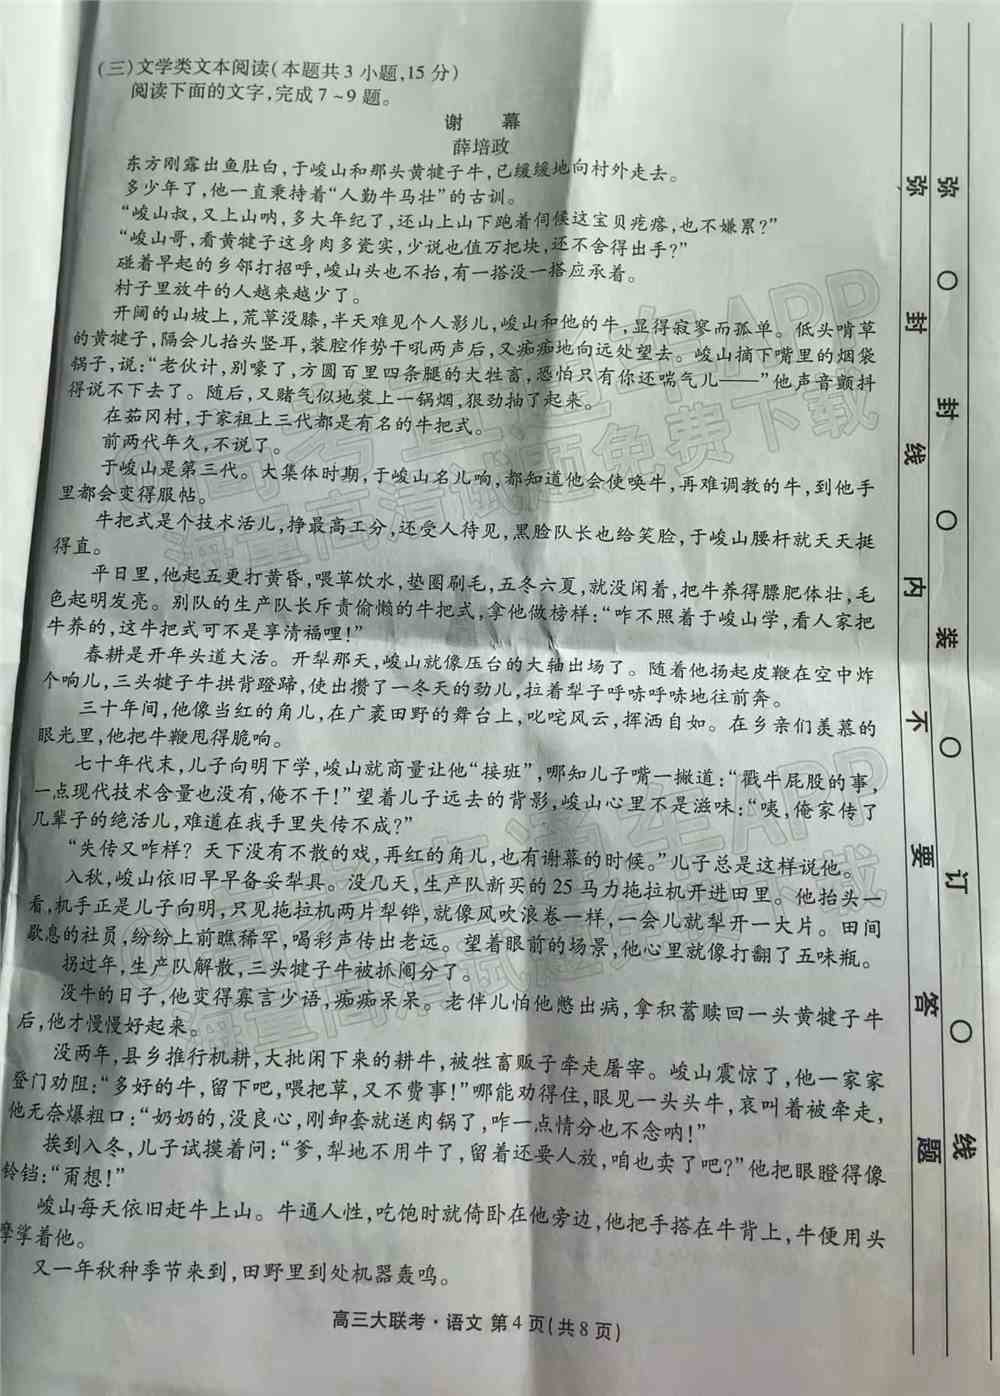 (三)文学类文本阅读(本题共3小题,15分)
阅读下面的文字,完成7~9题。
谢 幕
薛培政
东方刚露出鱼肚白,于峻山和那头黄犍子牛,已缓缓地向村外走去。
多少年了,他一直秉持着“人勤牛马壮”的古训。
“峻山叔,又上山呐,多大年纪了,还山上山下跑着伺候这宝贝疙瘩,也不嫌累?”
“峻山哥,看黄犍子这身肉多瓷实,少说也值万把块,还不舍得出手?”
碰着早起的乡邻打招呼,峻山头也不抬,有一搭没一搭应承着。
村子里放牛的人越来越少了。
开阔的山坡上,荒草没膝,半天难见个人影儿,峻山和他的牛,显得寂寥而孤单。低头啃草
的黄犍子,隔会儿抬头竖耳,装腔作势干吼两声后,又痴痴地向远处望去。峻山摘下嘴里的烟袋
锅子,说:“老伙计,别嚎了,方圆百里四条腿的大牲畜,恐怕只有你还喘气儿——”他声音颤抖
得说不下去了。随后,又赌气似地装上一锅烟,狠劲抽了起来。
在茹冈村,于家祖上三代都是有名的牛把式。
前两代年久,不说了。
于峻山是第三代。大集体时期,于峻山名儿响,都知道他会使唤牛,再难调教的牛,到他手
里都会变得服帖。
牛把式是个技术活儿,挣最高工分,还受人待见,黑脸队长也给笑脸,于峻山腰杆就天天挺
得直。
平日里,他起五更打黄昏,喂草饮水,垫圈刷毛,五冬六夏,就没闲着,把牛养得膘肥体壮,毛
色起明发亮。别队的生产队长斥责偷懒的牛把式,拿他做榜样:“咋不照着于峻山学,看人家把
牛养的,这牛把式可不是享清福哩!”
春耕是开年头道大活。开犁那天,峻山就像压台的大轴出场了。随着他扬起皮鞭在空中炸
个响儿,三头犍子牛拱背蹬蹄,使出攒了一冬天的劲儿,拉着犁子呼哧呼哧地往前奔。
三十年间,他像当红的角儿,在广袤田野的舞台上,叱咤风云,挥洒自如。在乡亲们羡慕的
眼光里,他把牛鞭甩得脆响。
七十年代末,儿子向明下学,峻山就商量让他“接班”,哪知儿子嘴一撇道:“戳牛屁股的事,
一点现代技术含量也没有,俺不干!”望着儿子远去的背影,峻山心里不是滋味:“咦,俺家传了
几辈子的绝活儿,难道在我手里失传不成?”
“失传又咋样?天下没有不散的戏,再红的角儿,也有谢幕的时候。”儿子总是这样说他。
入秋,峻山依旧早早备妥犁具。没几天,生产队新买的25马力拖拉机开进田里。他抬头一
看,机手正是儿子向明,只见拖拉机两片犁铧,就像风吹浪卷一样,一会儿就犁开一大片。田间
歇息的社员,纷纷上前瞧稀罕,喝彩声传出老远。望着眼前的场景,他心里就像打翻了五味瓶。
拐过年,生产队解散,三头犍子牛被抓阄分了。
没牛的日子,他变得寡言少语,痴痴呆呆。老伴儿怕他憋出病,拿积蓄赎回一头黄犍子牛
后,他才慢慢好起来。
没两年,县乡推行机耕,大批闲下来的耕牛,被牲畜贩子牵走屠宰。峻山震惊了,他一家家
登门劝阻:“多好的牛,留下吧,喂把草,又不费事!”哪能劝得住,眼见一头头牛,哀叫着被牵走,
他无奈爆粗口:“奶奶的,没良心,刚卸套就送肉锅了,咋一点情分也不念呐!”
挨到入冬,儿子试摸着问:“爹,犁地不用牛了,留着还要人放,咱也卖了吧?”他把眼瞪得像
铃铛:“甭想!”
峻山每天依旧赶牛上山。牛通人性,吃饱时就倚卧在他旁边,他把手搭在牛背上,牛便用头
摩挲着他。
又一年秋种季节来到,田野里到处机器轰鸣。
高三大联考·语文 第4页(共8页)
弥 封 线 内 不 要 答 题
弥 ○ 封 ○ 装 ○ 订 ○ 线